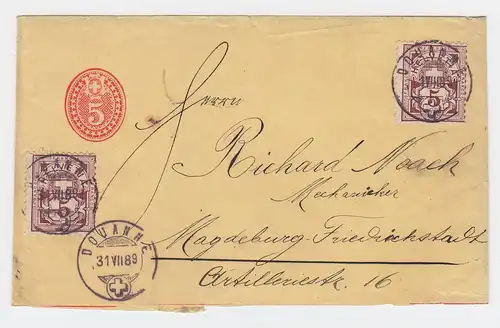 DOUANNE
HELVETIA
5
5
Herrn
Richard Noack
Mechaniker
Magdeburg-Friedrichstadt
Artilleriestr. 16
5
DOUANNE
31 VII 89